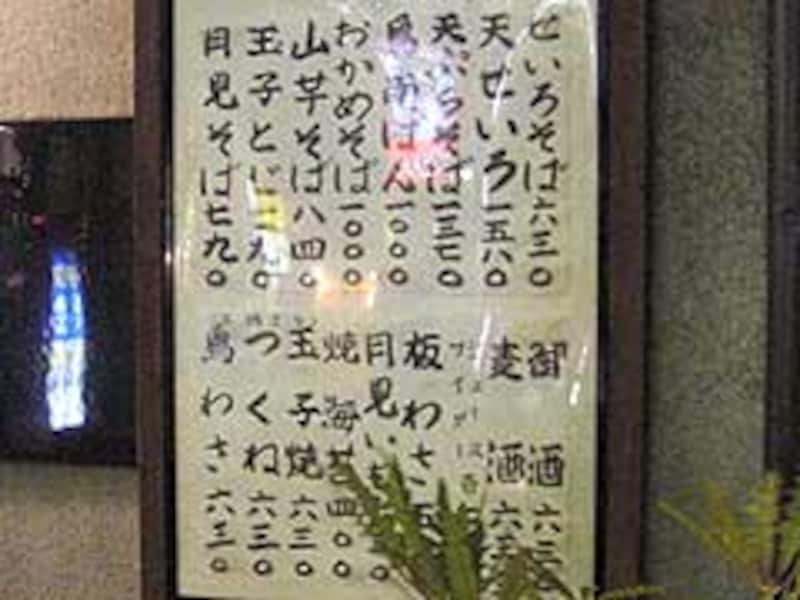 せいろそば六三〇
天せいろ一五八〇
天ぷらそば一三七〇
南ばん一〇〇〇
おかめそば一〇〇〇
山芋そば八四〇
玉子とじ 九〇
月見そば七九〇
御酒六三〇
麦酒六
板わさ五
月見いも
焼海苔四〇〇
玉子焼六三〇
つくね六三〇
鳥わさ六三〇